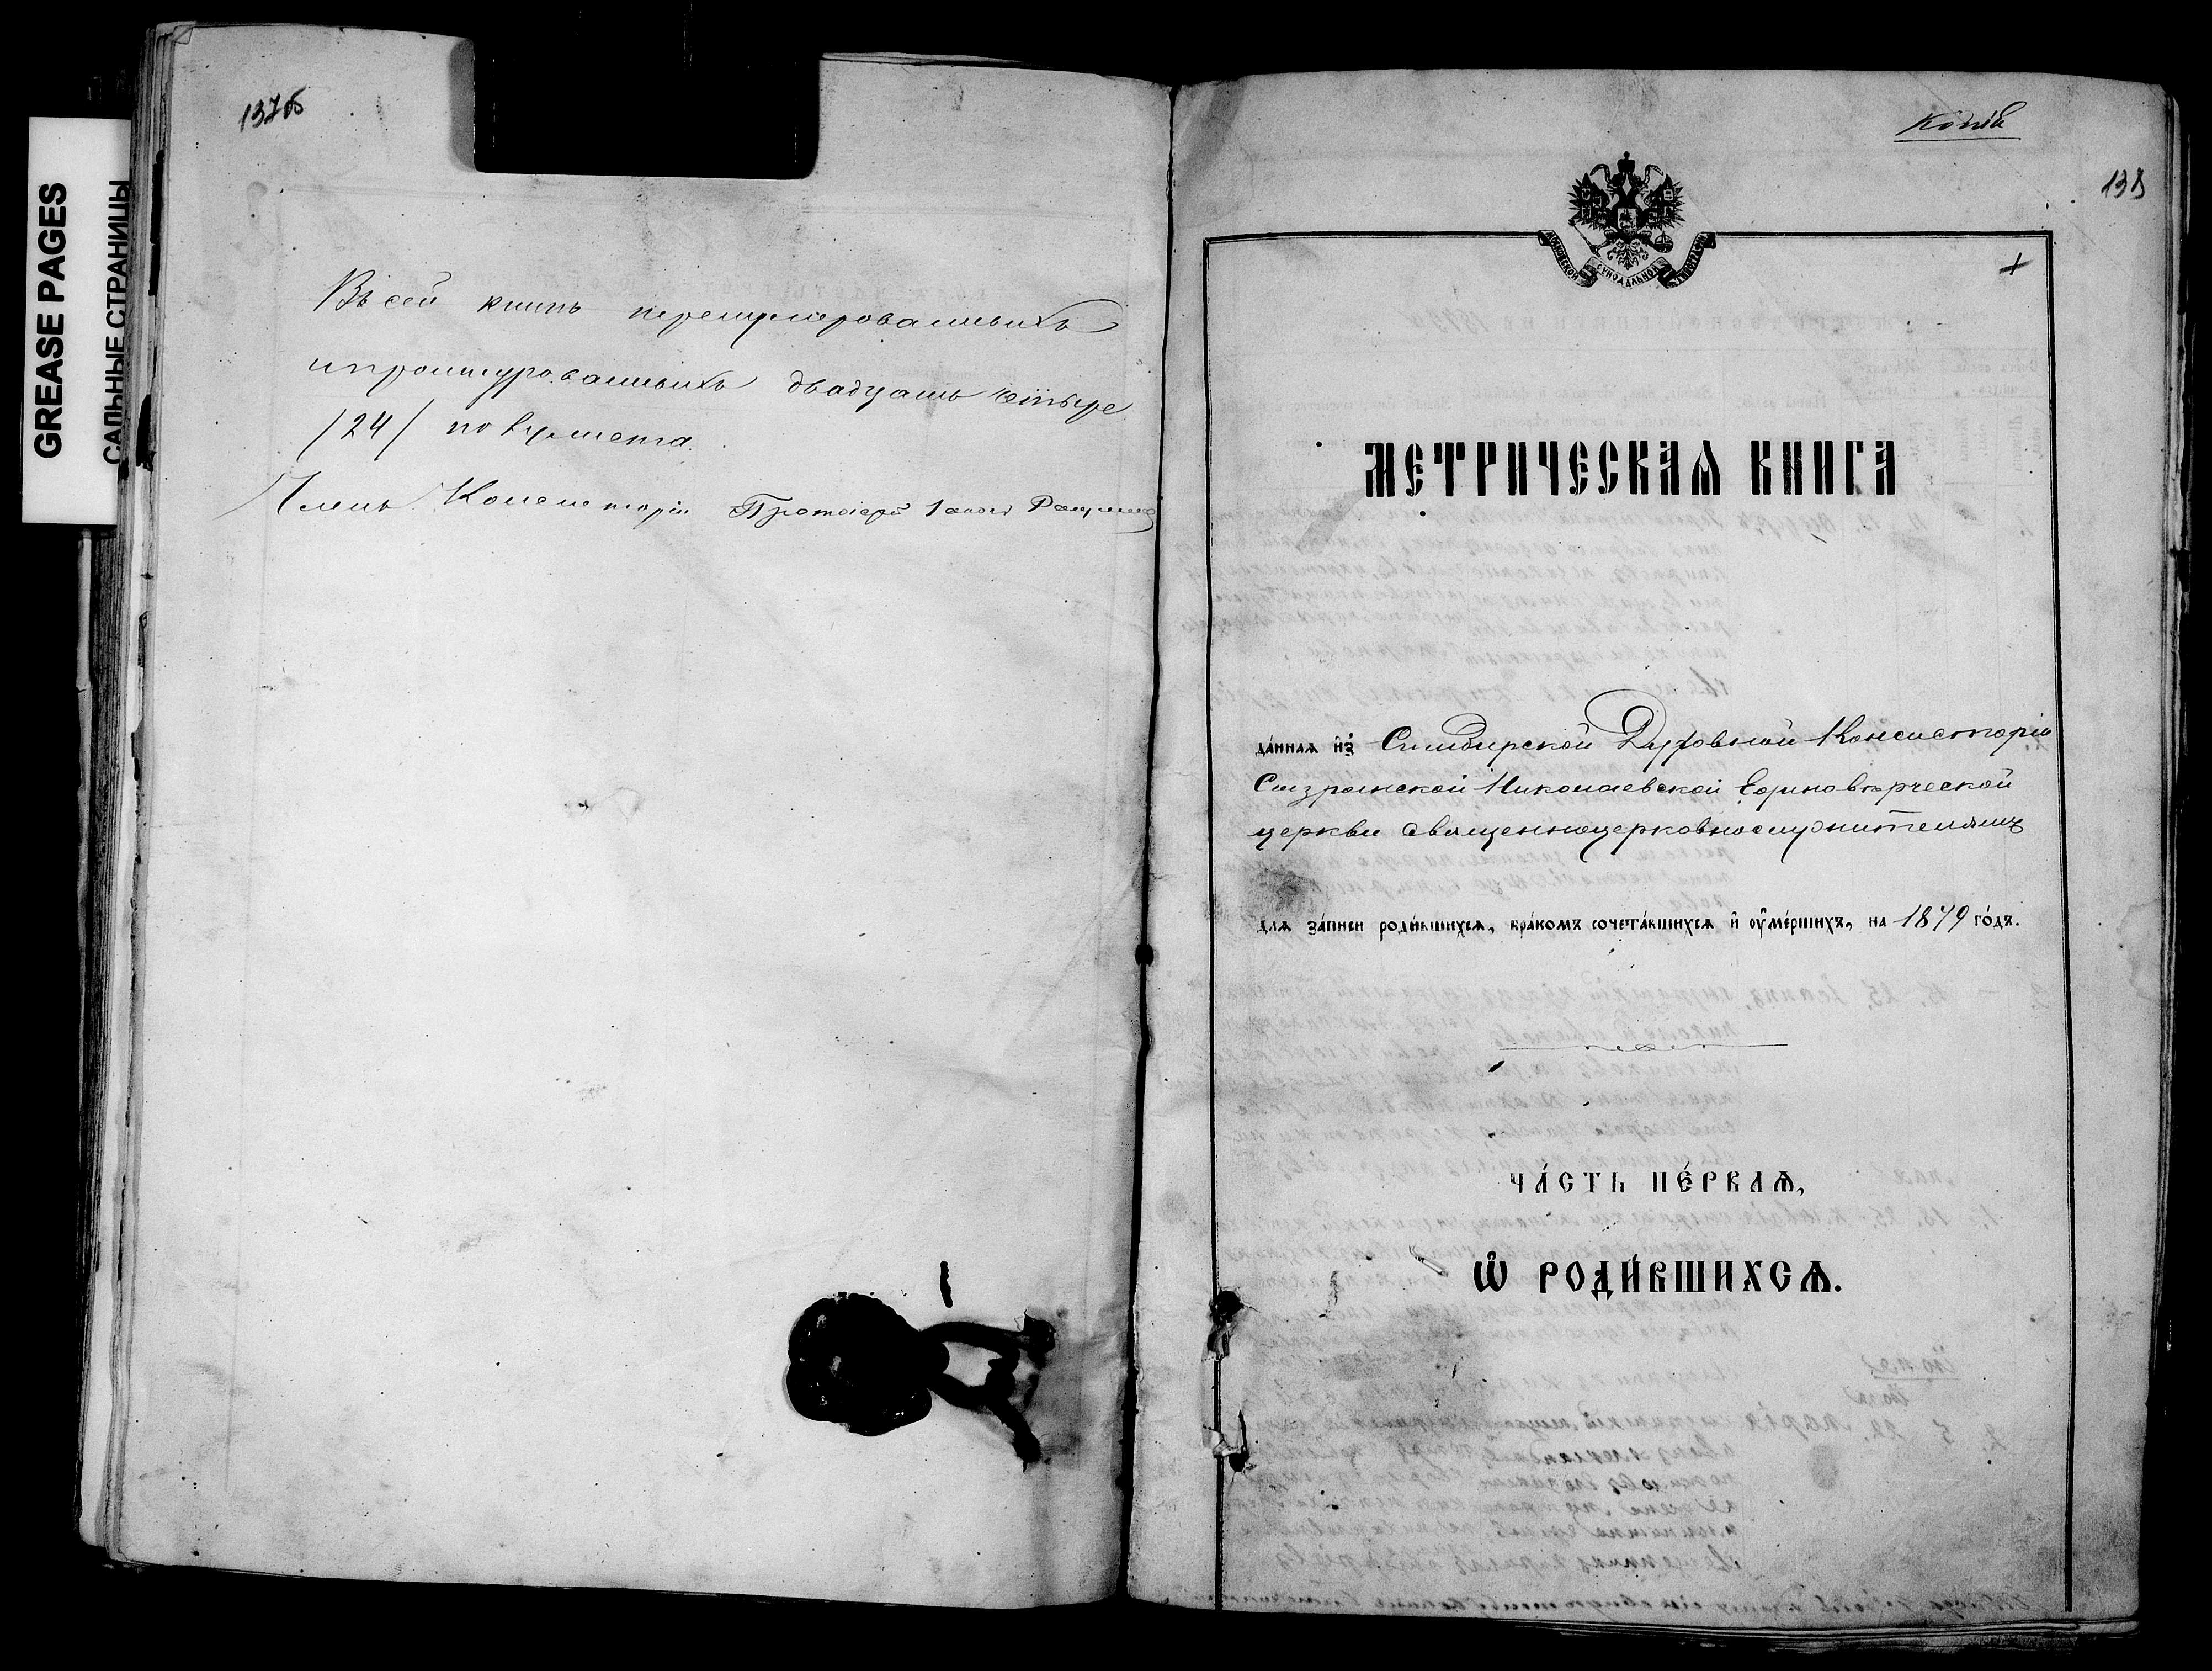 GREASE PAGES
САЛЬНЫЕ СТРАНИЦЫ
137об
Въ сей книгѣ перенумерованныхъ
и прошнурованныхъ двадцать четыре
/24/ полулиста.
Членъ Консисторіи Протоіерей Іоаннъ
Копія
138
МОСКОВСКОЙ СѴНОДАЛЬНОЙ ТИПОГРАФІИ
МЕТРИЧЕСКАѦ КНИГА
да́ннаѧ и҆з̾ Симбирской Духовной Консисторіи
Сызранской Николаевской Единовѣрческой
церкви священноцерковнослужителямъ
длѧ за́писи роди́вшихсѧ, бра́комъ сочета́вшихсѧ и҆ ᲂу҆ме́ршихъ, на 1879 го́дъ.
ЧА́СТЬ ПЕ́РВАѦ,
Ѽ РОДИ́ВШИХСѦ.